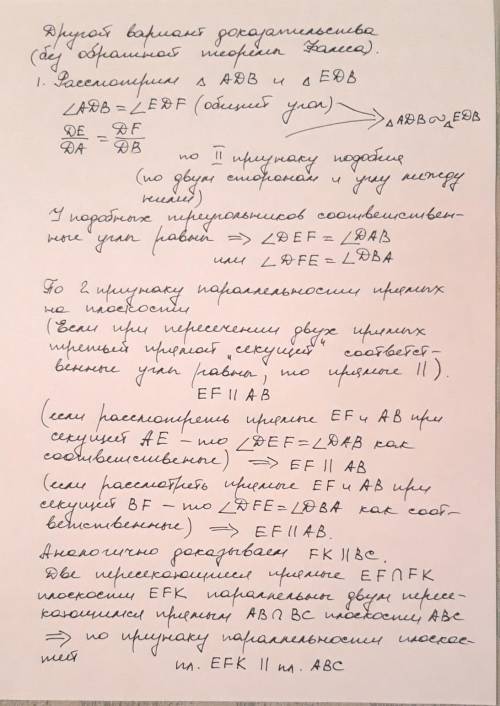 Другой вариант доказательства
(без обратной теоремы Фалеса).
1. Рассмотрим △ ADB и △ EDB
∠ADB = ∠EDF (общий угол)
DE/DA = DF/DB
△ADB ∾ △EDB
по II признаку подобия
(по двум сторонам и углу между
ними)
У подобных треугольников соответствен-
ные углы равны ⇒ ∠DEF = ∠DAB
или ∠DFE = ∠DBA
По 2 признаку параллельности прямых
на плоскости
(Если при пересечении двух прямых
третьей прямой „секущей" соответст-
венные углы равны, то прямые ||).
EF || AB
(если рассмотреть прямые EF и AB при
секущей AE – то ∠DEF = ∠DAB как
соответственные) ⇒ EF || AB
(если рассмотреть прямые EF и AB при
секущей BF – то ∠DFE = ∠DBA как соот-
ветственные) ⇒ EF || AB.
Аналогично доказываем FK || BC.
Две пересекающиеся прямые EF∩FK
плоскости EFK параллельны двум пересе-
кающимся прямым AB∩BC плоскости ABC
⇒ по признаку параллельности плоскос-
тей пл. EFK || пл. ABC